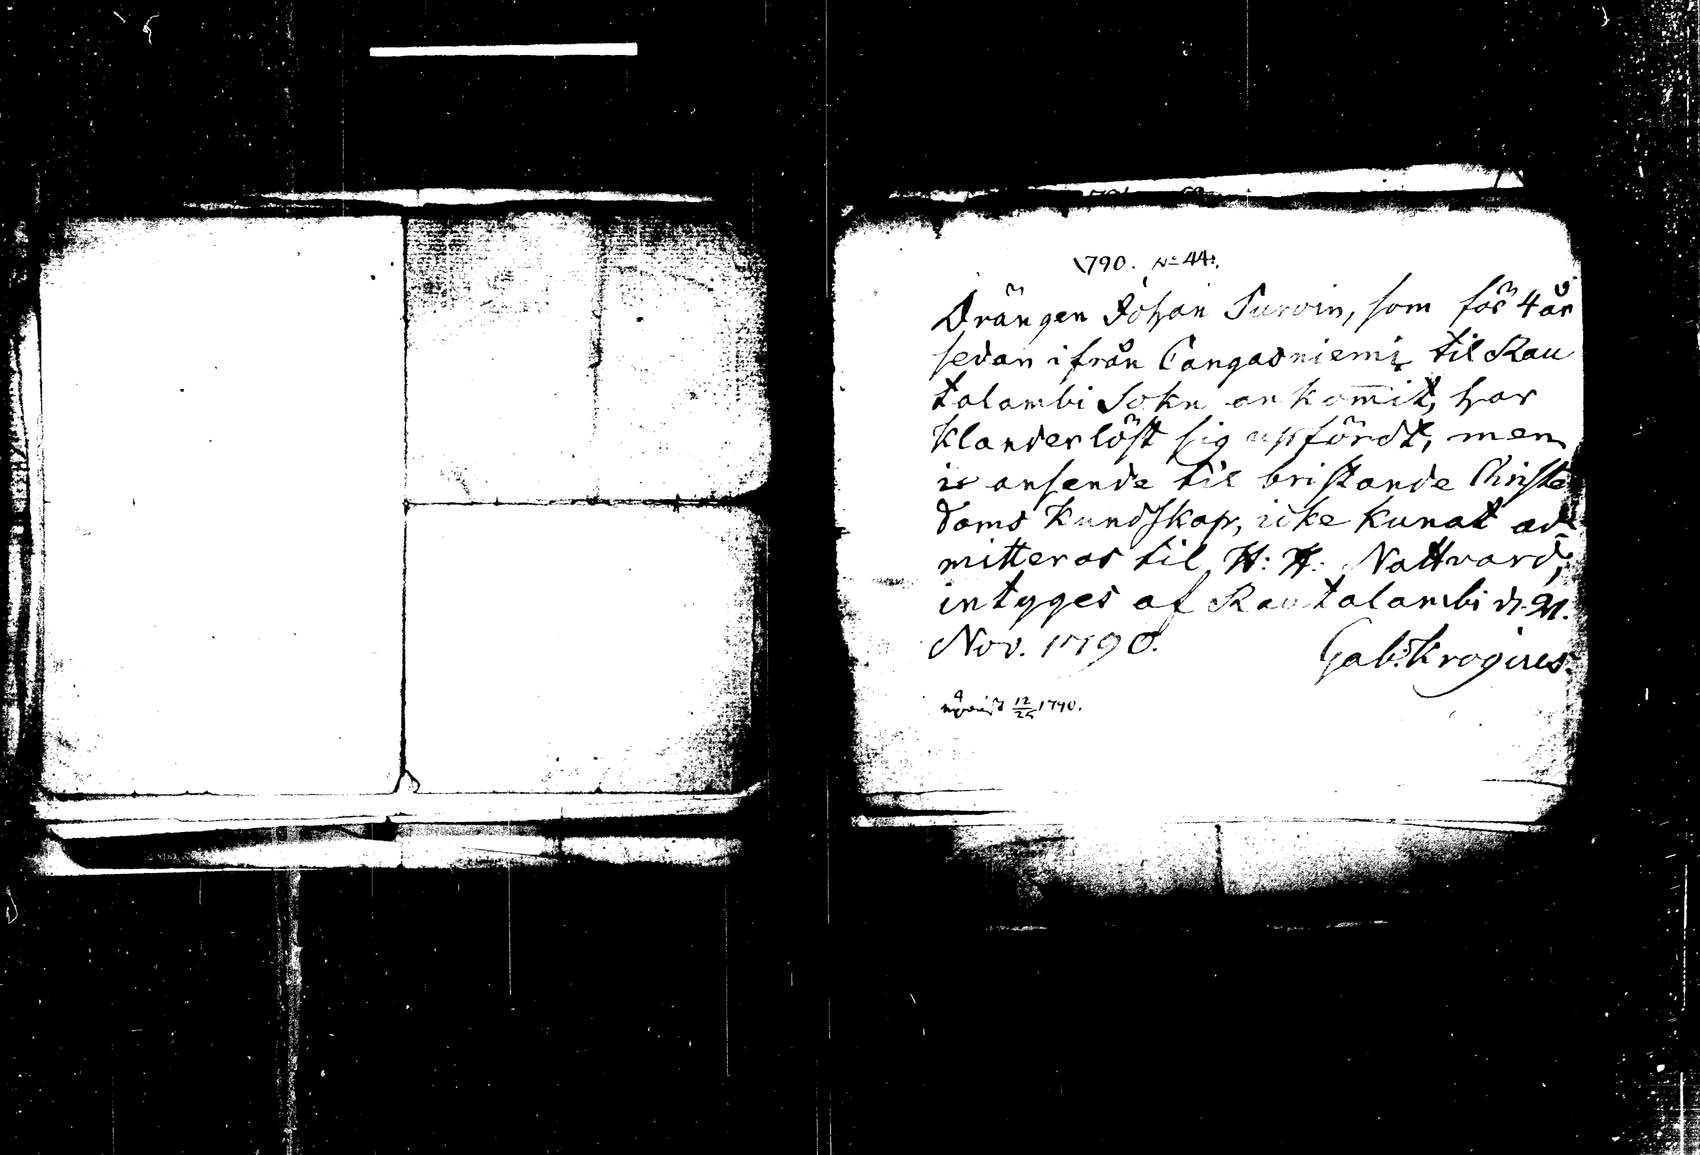 1790. No 44.
Drängen Johan Turoin, som för 4 år
sedan ifrån Cangasniemi til Rau
talambi Sokn ankom̅it, har
klanderlöst sig upfördt, men
i ansende til bristande Christe
doms kundskap, icke kunat ad
mitteras til H: H: Nattvard,
intyges af Rautalambi d. 21.
Nov. 1790. Gab. Krogius.
12/25 1790.